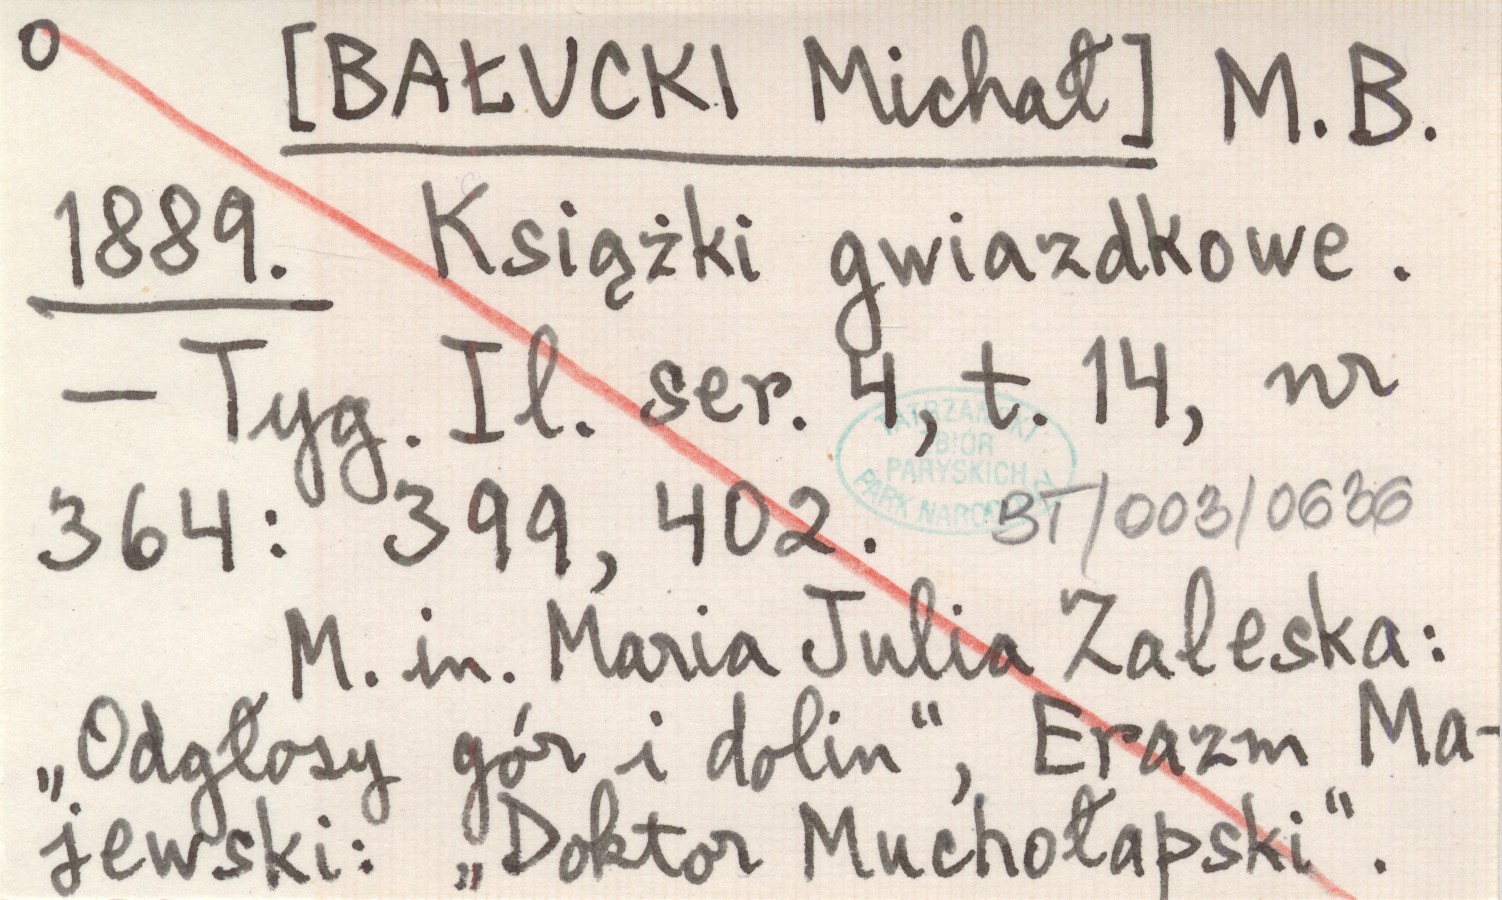 o [BAŁUCKI Michał] M. B.
1889. Książki gwiazdkowe.
— Tyg. Il. ser. 4, t. 14, nr
364: 399, 402.
TATRZAŃSKI
ZBIÓR
PARYSKICH
PARK NARODOWY
BT/003/0636
M. in. Maria Julia Zaleska:
„Odgłosy gór i dolin“, Erazm Ma-
jewski: „Doktor Muchołapski“.